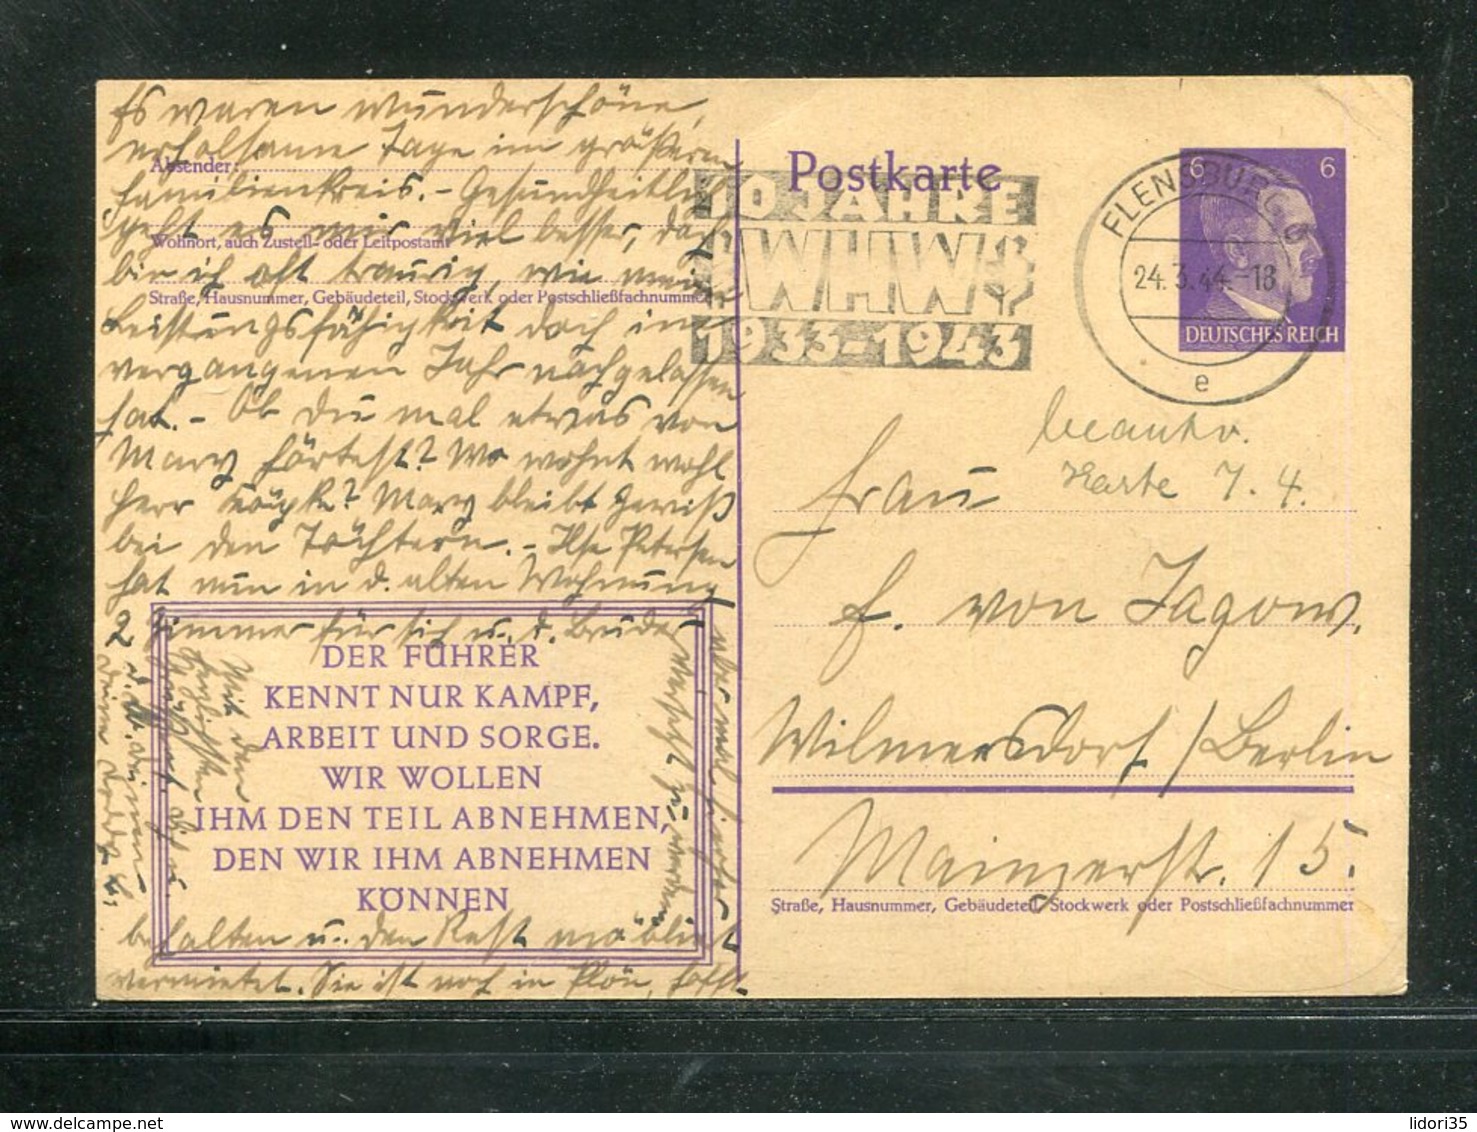 Es waren wunderschöne,
erholsame Tage im größeren
Absender:
Familienkreis. - Gesundheitlich
geht es mir viel besser, doch
Wohnort, auch Zustell- oder Leitpostamt
bin ich oft traurig, wie meine
Straße, Hausnummer, Gebäudeteil, Stockwerk oder Postschließfachnummer
Leistungsfähigkeit doch im
vergangenen Jahr nachgelassen
hat. - Ob Du mal etwas von
Mary hörtest? Wo wohnt wohl
Herr Köpk? Mary bleibt gewiß
bei den Töchtern. - Ilse Petersen
hat nun in d. alten Wohnung
2 Zimmer für sich u. d. Bruder
behalten u. den Rest möbliert
vermietet. Sie ist noch in Plön, hofft
aber mal hierher
versetzt zu werden.
Mit den
herzlichsten
DER FÜHRER
KENNT NUR KAMPF,
ARBEIT UND SORGE.
WIR WOLLEN
IHM DEN TEIL ABNEHMEN,
DEN WIR IHM ABNEHMEN
KÖNNEN
Postkarte
10 JAHRE
WHW
1933-1943
FLENSBURG
24.3.44.-18
e
6 6
DEUTSCHES REICH
beantw.
Karte 7. 4.
Frau
F. von Jagow.
Wilmersdorf / Berlin
Mainzerstr. 15.
Straße, Hausnummer, Gebäudeteil, Stockwerk oder Postschließfachnummer
lidori35